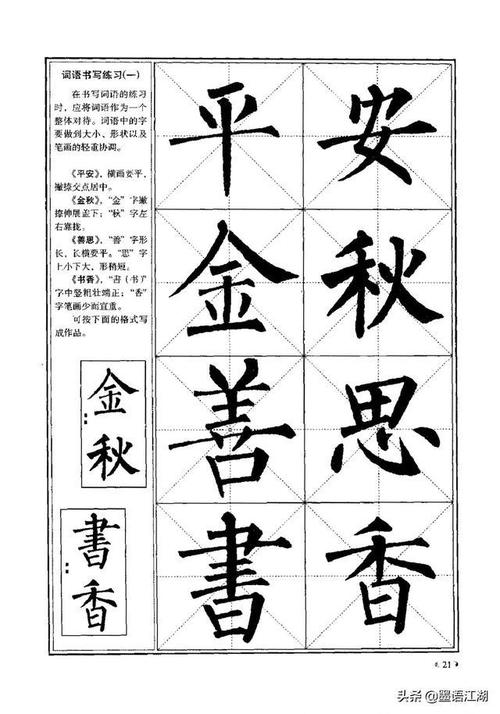 词语书写练习(一)
在书写词语的练习
时，应将词语作为一个
整体对待。词语中的字
要做到大小、形状以及
笔画的轻重协调。
《平安》，横画要平，
撇捺交点居中。
《金秋》，“金”字撇
捺伸展盖下；“秋”字左
右靠拢。
《善思》，“善”字形
长，长横要平。“思”字
上小下大，形稍短。
《书香》，“書(书)”
字中竖粗壮端正；“香”
字笔画少而宜重。
可按下面的格式写
成作品。
金
秋
書
香
平安
金秋
善思
書香
21
头条@墨语江湖